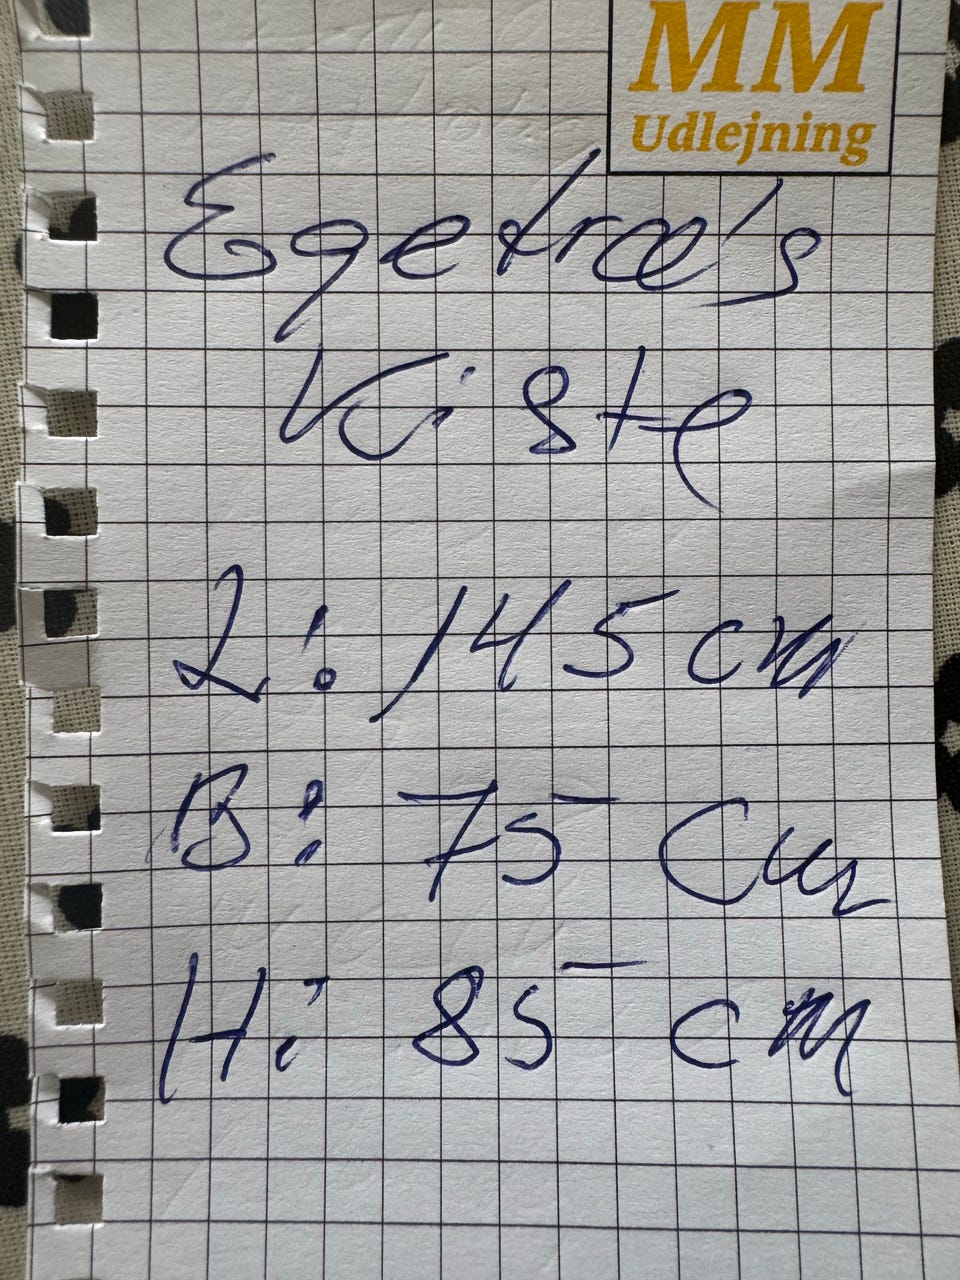 MM
Udlejning
Egetræ's
Kiste
L: 145 cm
B: 75 cm
H: 85 cm